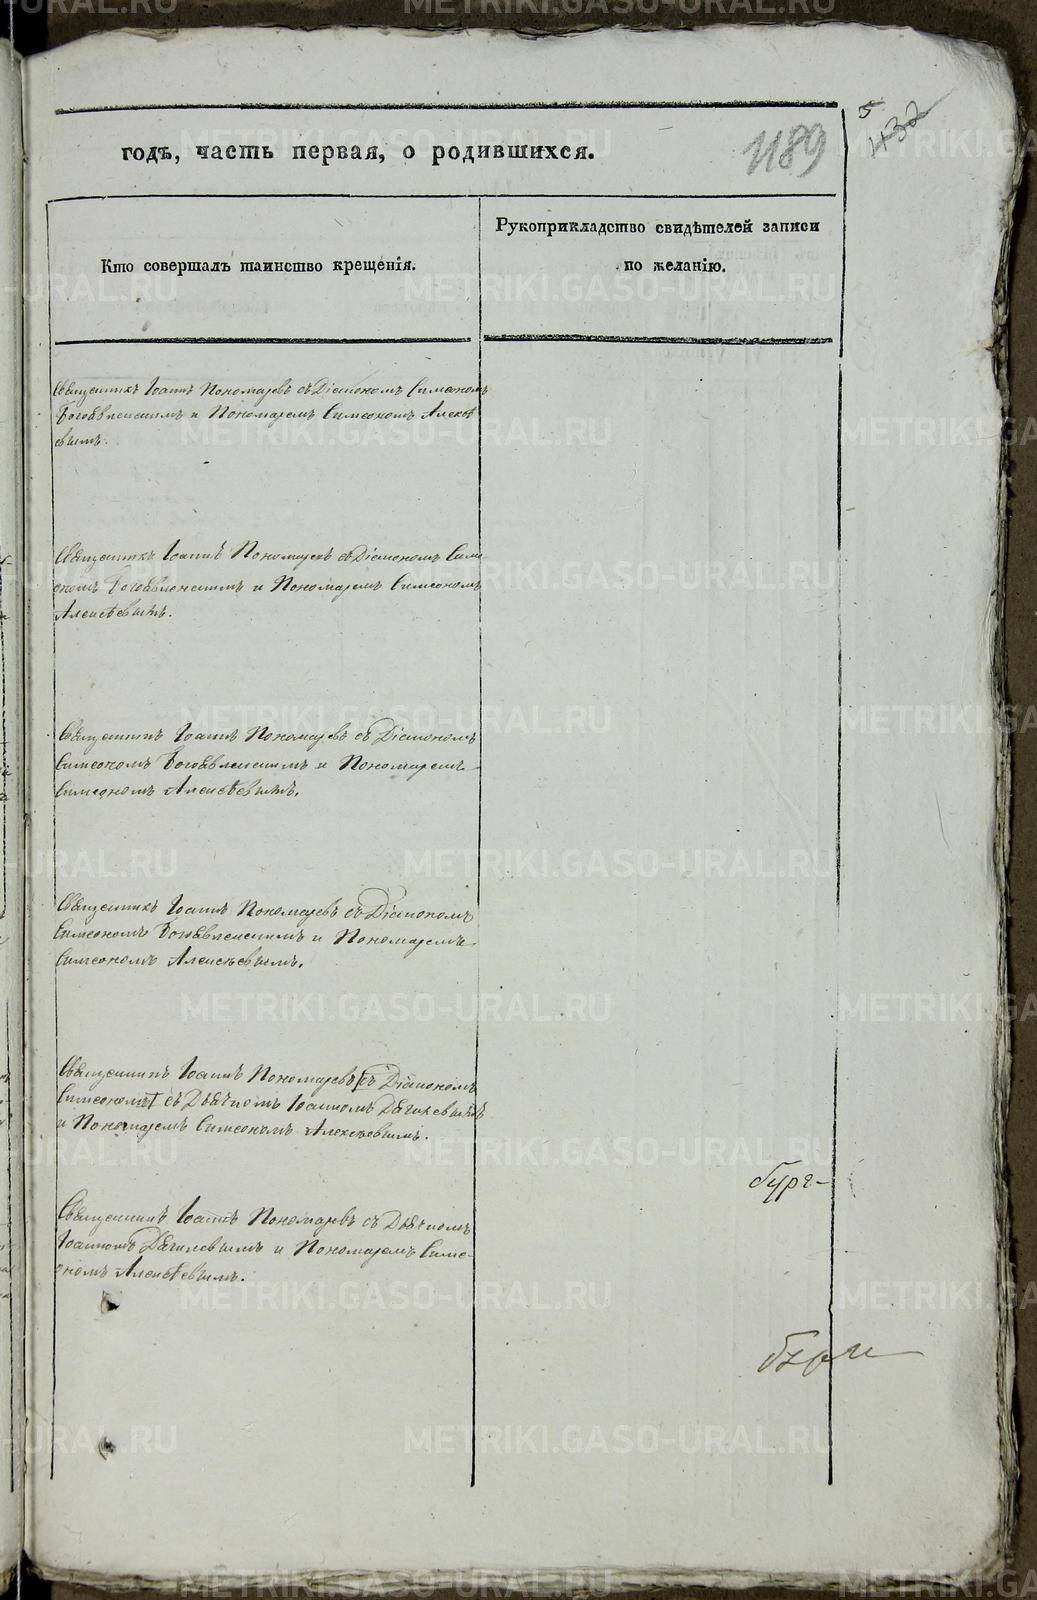 5
432
1189
годъ, часть первая, о родившихся.
Кто совершалъ таинство крещенія.
Рукоприкладство свидѣтелей записи
по желанію.
Священникъ Іоаннъ Пономаревъ съ Діакономъ Симеономъ
Богоявленскимъ и Пономаремъ Симеономъ Алексѣ
евымъ.
Священникъ Іоаннъ Пономаревъ съ Діакономъ Симе
ономъ Богоявленскимъ и Пономаремъ Симеономъ
Алексѣевымъ.
Священникъ Іоаннъ Пономаревъ съ Діакономъ
Симеономъ Богоявленскимъ и Пономаремъ
Симеономъ Алексѣевымъ.
Священникъ Іоаннъ Пономаревъ съ Діакономъ
Симеономъ Богоявленскимъ и Пономаремъ
Симеономъ Алексѣевымъ.
Священникъ Іоаннъ Пономаревъ [съ Діакономъ
Симеономъ] съ Дьячкомъ Іоанномъ
и Пономаремъ Симеономъ Алексѣевымъ.
Священникъ Іоаннъ Пономаревъ съ Дьячкомъ
Іоанномъ и Пономаремъ Симе
ономъ Алексѣевымъ.
METRIKI.GASO-URAL.RU